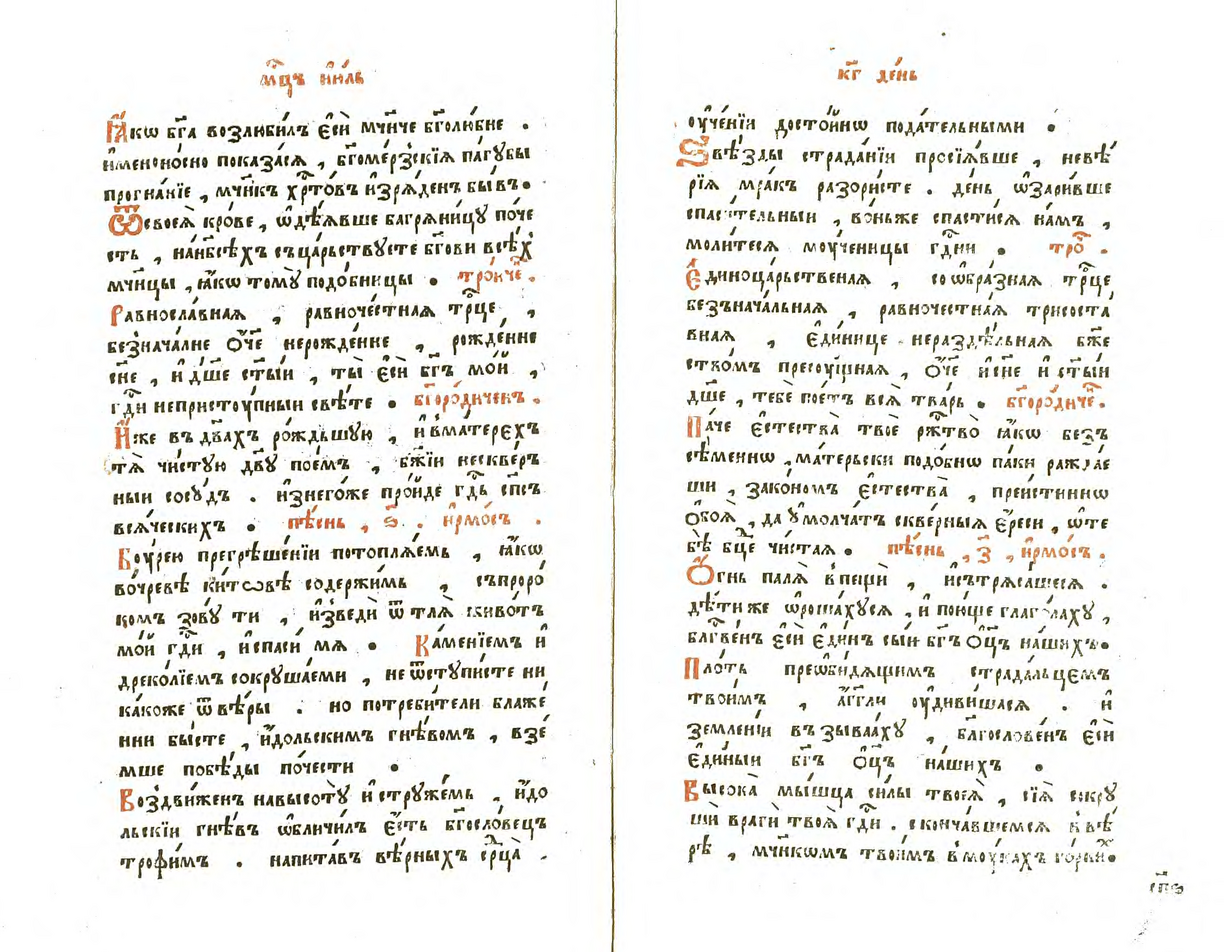 мц҃ъ и҆ю́ль
Ꙗ҆́кѡ бг҃а возлюби́лъ є҆сѝ мч҃нче бг҃олю́бне .
и҆меноно́сно показа́сѧ , бг҃оме́рзскїѧ па́гꙋбы
прогна́нїе , мч҃нкъ хр҃то́въ и҆зрѧ́денъ бы́въ .
Ѿ своеѧ̀ кро́ве , ѡ҆дѣ́ѧвше багрѧни́цꙋ поче
сть , на́нбсѣхъ съца́рьствꙋете бг҃ови всѣ́х
мч҃ницы , ꙗ҆́кѡ томꙋ̀ подо́бницы . тро́иче .
Равносла́внаѧ , равноче́стнаѧ трⷪ҇це ,
безнача́лне ѻ҆́ч҃е нерожде́нне , рожде́нне
сн҃е , и҆ дш҃е ст҃ы́и , ты̀ є҆сѝ бг҃ъ мо́й ,
гдⷭ҇и непристоу́пныи свѣ́те . бг҃оро́диченъ .
И҆́же въ дв҃ахъ ро́ждьшꙋю , и҆ в̾матерехъ
тѧ̀ чи́стꙋю дв҃ꙋ пое́мъ , бж҃їи нескве́р
ныи сосꙋ́дъ . и҆знего́же про́йде гдⷭ҇ь сп҃съ
всѧ́ческихъ . пѣ́снь , ѕ҃ . і҆рмо́съ .
Воу́рею прегрѣше́нїи потоплѧ́емь , ꙗ҆́кѡ
во́чревѣ ки́товѣ содержи́мь , съпроро́
комъ зовꙋ́ ти , и҆зведѝ ѿ тлѧ̀ живо́тъ
мо́й гдⷭ҇и , и҆ спаси́ мѧ . Ка́менїемъ и҆
дреко́лїемъ сокрꙋша́еми , не ѿстꙋпи́сте ни
ка́коже ѿ вѣ́ры . но потреби́тели блаже́
нни бы́сте , и҆́дольскимъ гнѣ́вомъ , взе́
мше побѣ́ды по́чести .
Воздви́женъ навысотꙋ̀ и҆ стрꙋже́мь , и҆́до
льскїи гнѣ́въ ѡ҆бличи́лъ є҆́сть бг҃осло́вецъ
тро́фимъ . напита́въ вѣ́рныхъ ср҃ца̀ .
к҃г де́нь
оу҆че́нїи досто́йнѡ пода́тельными .
Ѕвѣ́зды страда́нїи просїѧ́вше , невѣ́
рїѧ мра́къ разори́сте . де́нь ѡ҆зари́вше
спаси́тельныи , во́ньже спасти́сѧ на́мъ ,
моли́тесѧ моу́ченицы гдⷭ҇ни . трⷪ҇ .
Є҆диноца́рьственаѧ , соѡбра́знаѧ трⷪ҇це
безънача́льнаѧ , равноче́стнаѧ трисоста́
внаѧ , є҆дини́це нераздѣ́льнаѧ бж҃е
ство́мъ пресоу́щнаѧ , ѻ҆́ч҃е и҆ сн҃е и҆ ст҃ы́и
дш҃е , тебѐ пое́тъ всѧ̀ тва́рь . бг҃оро́диче .
Па́че є҆стества̀ твоѐ рж҃тво̀ ꙗ҆́кѡ безъ
сѣ́мениѡ , ма́терьски подо́бнѡ па́ки ражда́е
ши , зако́номъ є҆стества̀ , преи́стиннѡ
ѻ҆боѧ̀ , да ᲂу҆молча́тъ скве́рныѧ є҆́реси , ѡ҆те
бѣ̀ бц҃е чи́стаѧ . пѣ́снь , з҃ , і҆рмо́съ .
Ѻ҆́гнь палѧ̀ в̾пещѝ , и҆сътрѧса́шесѧ .
дѣ́ти же ѡ҆роша́хꙋсѧ , и҆ пою́ще глаго́лахꙋ ,
блгⷭ҇ве́нъ є҆сѝ є҆ди́нъ сы́и бг҃ъ ѻ҆ц҃ъ на́шихъ .
Пло́ть преѡби́дѧщимъ страда́льцемъ
твои́мъ , а҆́гг҃ли оу҆диви́шасѧ . и҆
земле́нїи възыва́ахꙋ , благослове́нъ є҆сѝ
є҆ди́ныи бг҃ъ ѻ҆ц҃ъ на́шихъ .
Высока̀ мы́шца си́лы твоеѧ̀ , сїѧ̀ сокрꙋ
шѝ врагѝ твоѧ̀ гдⷭ҇и . сконча́вшемсѧ в̾вѣ́
рѣ , мч҃нкѡмъ твои́мъ в̾моу́кахъ
сп҃ѕ